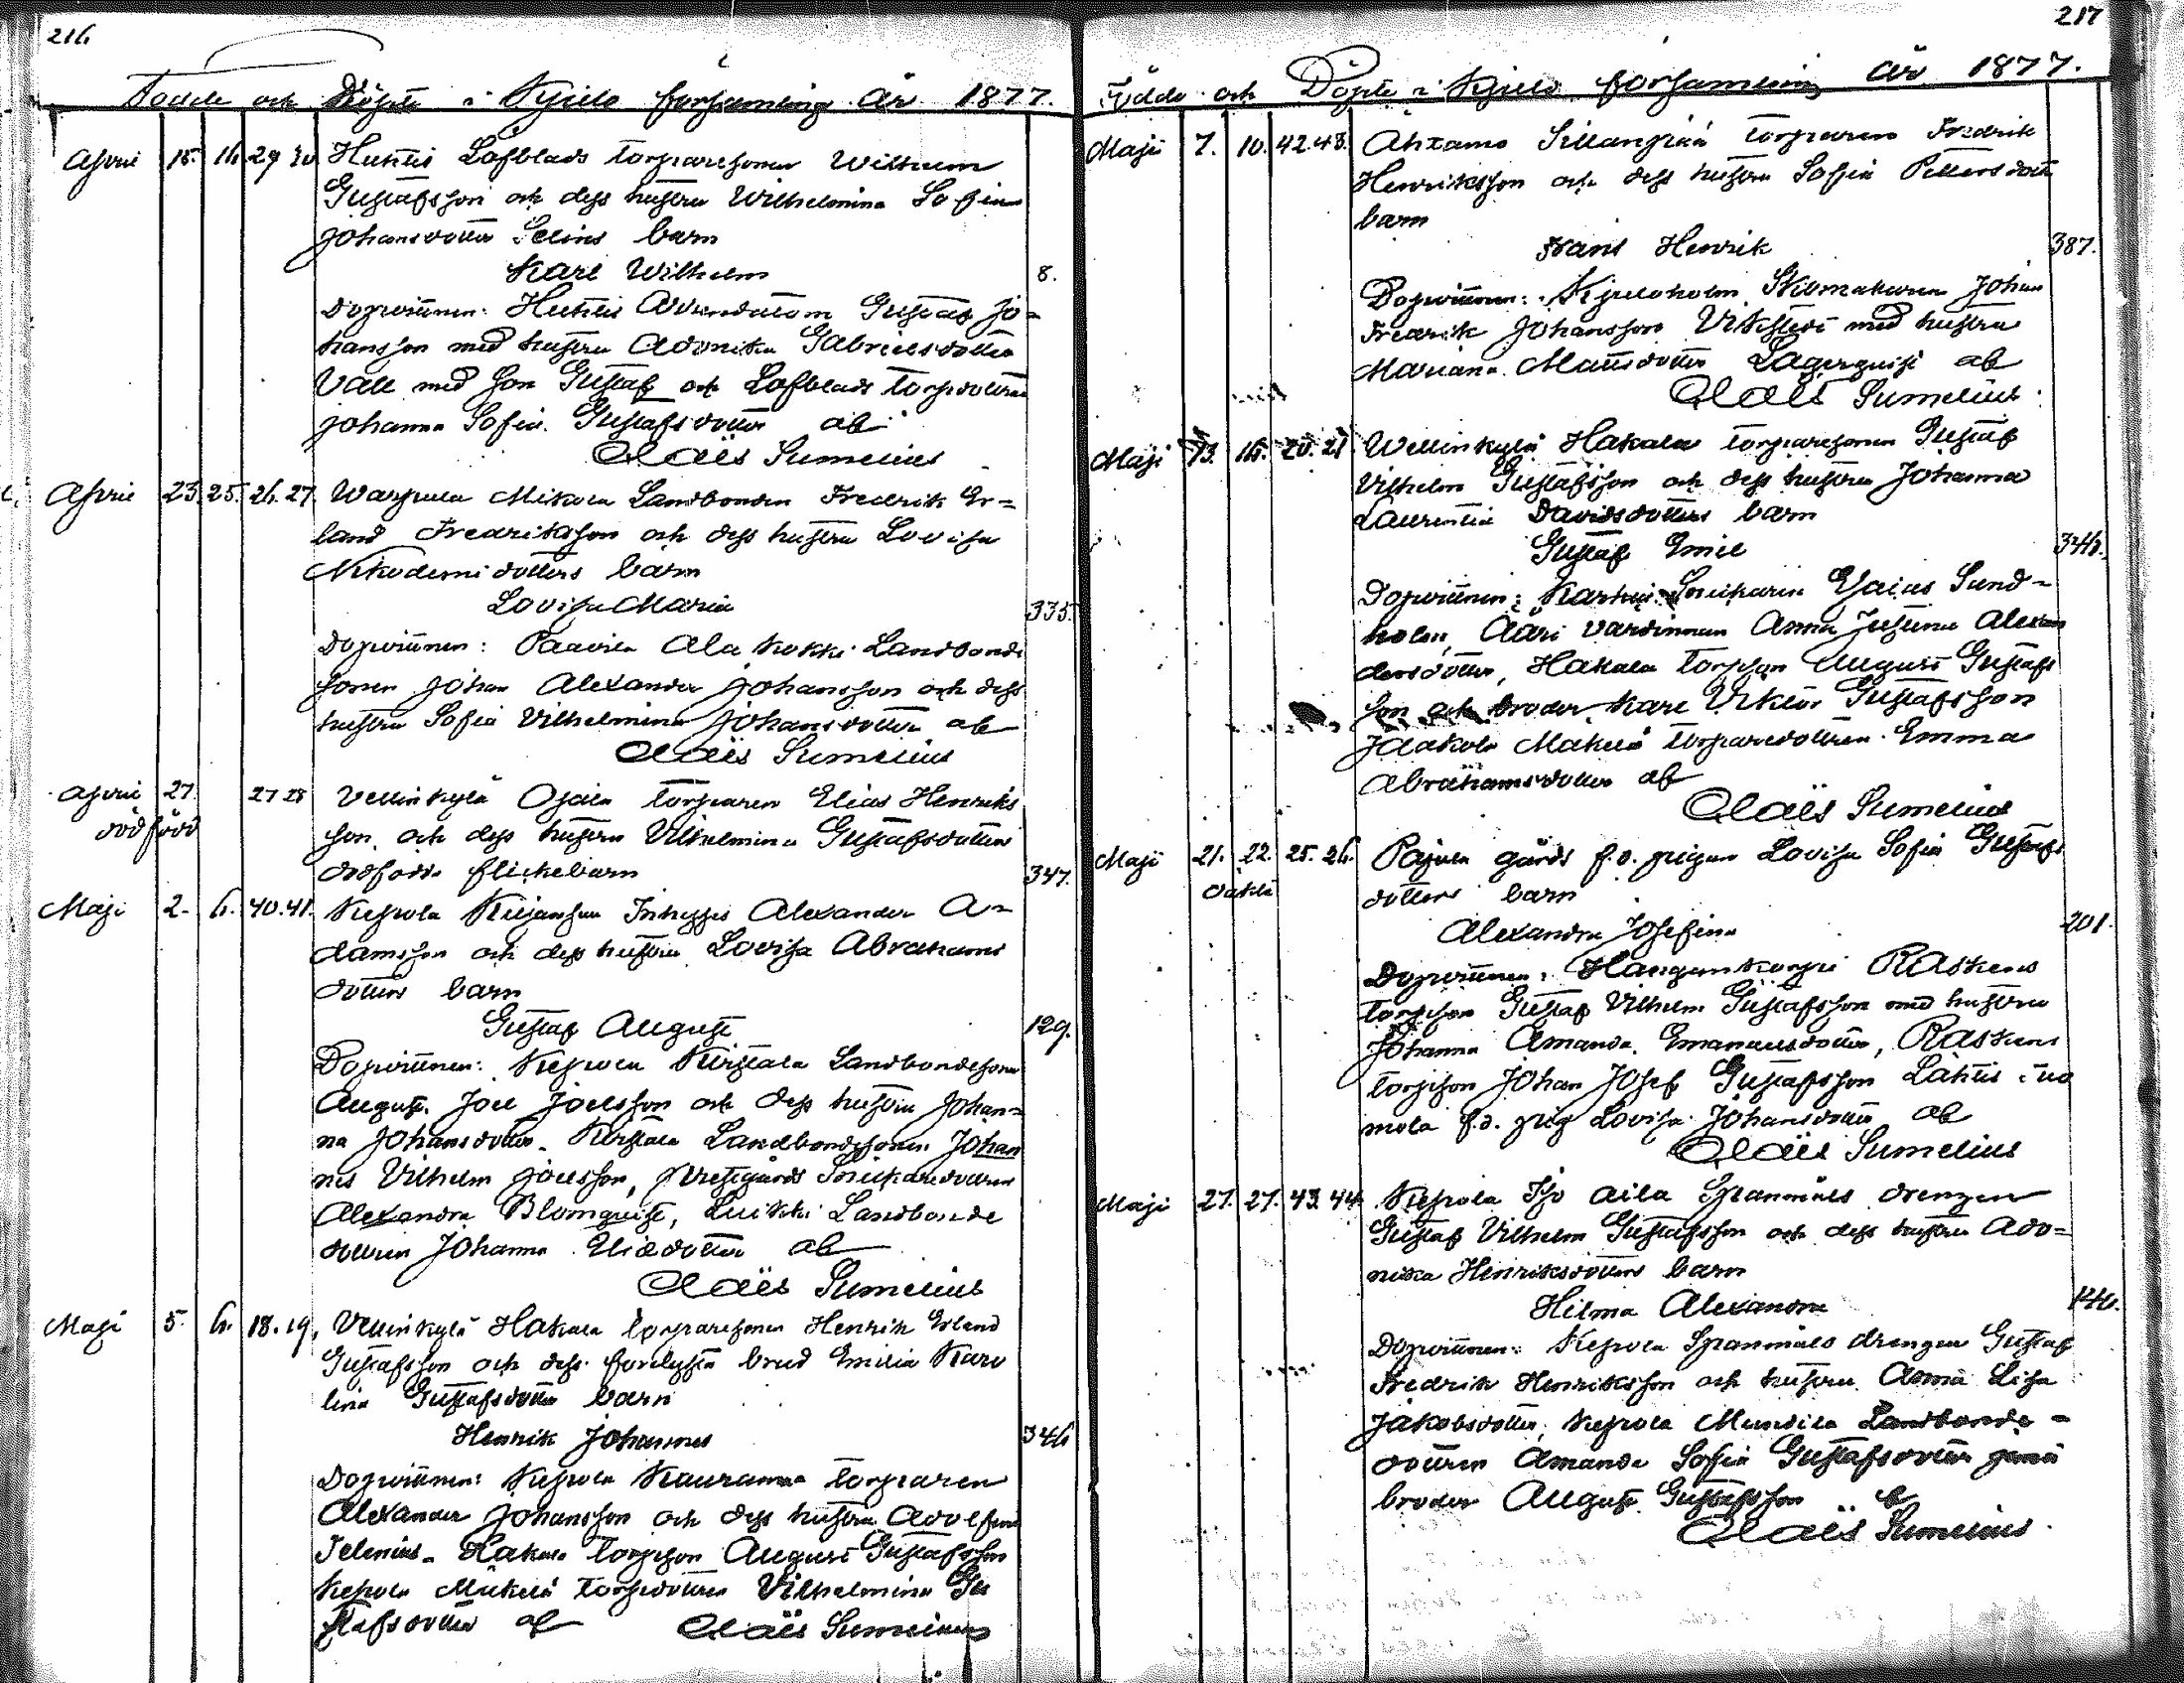 216
Födde och Döpte i Kjulo församling år 1877.
April 15. 16. 29 30 Huhtis Löfblads torparesonen Wilhelm
Gustafsson och dess hustru Wilhelmina Sofia
Johansdotter Selins barn
Karl Wilhelm 8.
Dopvittnen: Huhtis Gustaf Jo=
hansson med hustru Adonika Gabrielsdotter
Vall med son Gustaf och Löfblads torpdottren
Johanna Sofia Gustafsdotter af
Claës Sumelius
April 23. 25. 26. 27. Warpula Mikola Landbonden Fredrik Er=
land Fredriksson och dess hustru Lovisa
Nikodemi dotters barn
Lovisa Maria 335.
Dopvittnen: Paavila Ala kokki Landbonde
sonen Johan Alexander Johansson och dess
hustru Sofia Vilhelmina Johansdotter af
Claës Sumelius
April 27. 27 28 Vellinkylä Ojala torparen Elias Henriks
dödfödd
son och dess hustru Vilhelmina Gustafsdotters
dödfödda flickebarn 347.
Maji 2. 6. 40. 41. Kepola Inhyses Alexander A=
damsson och dess hustru Lovisa Abrahams
dotters barn
Gustaf August 129.
Dopvittnen: Kepola Kirstala Landbondesonen
August Joel Joelsson och dess hustru Johan=
na Johansdotter. Kirstala Landbondesonen Johan
nes Vilhelm Joelsson, Prestgårds Snickaredottren
Alexandra Blomquist, Luikki Landbonde
dottren Johanna Eliædotter af
Claës Sumelius
Maji 5. 6. 18. 19. Vellinkylä Hakala torparesonen Henrik Erland
Gustafsson och dess förelysta brud Emilia Karo
lina Gustafsdotter barn
Henrik Johannes 346
Dopvittnen: Kepola Kauranma torparen
Alexander Johansson och dess hustru Adolfina
Jelenius. Hakala torpson August Gustafsson
Kepola Mäkelä torpdottren Vilhelmina Gu
stafsdotter af Claës Sumelius
217
Födde och Döpte i Kjulo församling år 1877.
Maji 7. 10. 42. 43. Ahtamo Sillanpää torparen Fredrik
Henriksson och dess hustru Sofia Pettersdott
barn
Frans Henrik 387.
Dopvittnen: Kjuloholm Johan
Fredrik Johansson Vikstedt med hustru
Mariana Mattsdotter Lagerquist af
Claës Sumelius
Maji 13. 16. 20. 21 Wellinkylä Hakala torparesonen Gustaf
Vilhelm Gustafsson och dess hustru Johanna
Laurentia Davidsdotters barn
Gustaf Emil 346.
Dopvittnen: Snickaren Esaias Sund=
holm, Ääri värdinnan Anna Justina Alexan
dersdotter, Hakala torpson August Gustafs
son och broder Karl Viktor Gustafsson
Jaakola Mäkelä torparedottren Emma
Abrahamsdotter af
Claës Sumelius
Maji 21. 22. 25. 26. Pajula gårds f.d. pigan Lovisa Sofia Gustafs
oäkta
dotters barn
Alexandra Josefina 201.
Dopvittnen: Hangonkorpi Raskens
torpson Gustaf Vilhelm Gustafsson med hustru
Johanna Amanda Emanuelsdotter, Raskens
torpson Johan Josef Gustafsson Lähtis
mola f.d. pig Lovisa Johansdotter af
Claës Sumelius
Maji 27. 27. 43. 44. Kepola Iso Aila Spanmåls drengen
Gustaf Vilhelm Gustafsson och dess hustru Ado=
nika Henriksdotters barn
Hilma Alexandra 146.
Dopvittnen: Kepola Spanmåls drengen Gustaf
Fredrik Henriksson och hustru Anna Lisa
Jakobsdotter, Kepola Mundila Landbonde=
dottren Amanda Sofia Gustafsdotter jemte
broder August Gustafsson af
Claës Sumelius